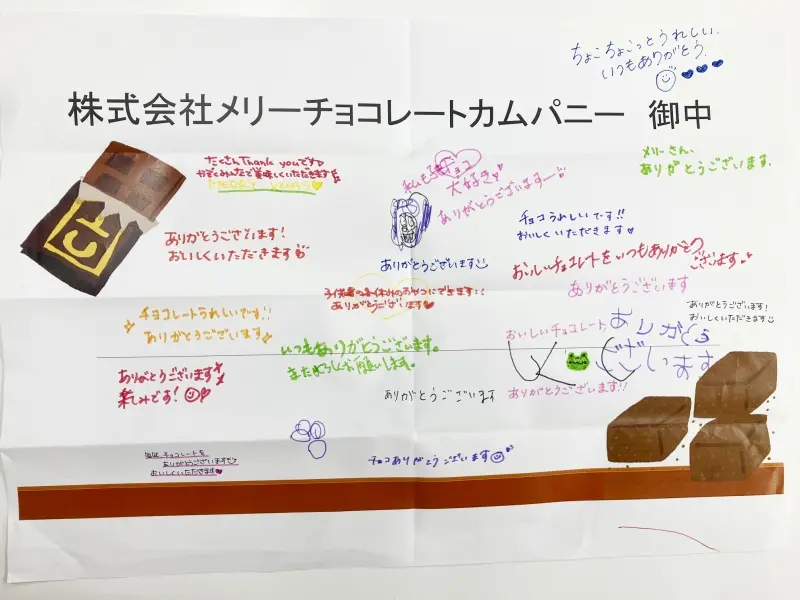 ちょこちょこっとうれしい。
いつもありがとう。
株式会社メリーチョコレートカムパニー 御中
メリーさん、
ありがとうございます。
たくさんThank youです♡
かぞくみんなで美味しくいただきます
MERRY XMAS
私も子供もチョコ
大好き♥
ありがとうございますー
チョコうれしいです!!
おいしくいただきます♥
ありがとうございます!
おいしくいただきます
ありがとうございます
おいしいチョコレートをいつもありがとう
ございます
ありがとうございます
おやつにできます!
ありがとうございます♥
ありがとうございます!
おいしくいただきます
チョコレートうれしいです!!
ありがとうございます
おいしいチョコレート
ありがとう
ございます
いつもありがとうございます。
またよろしくお願いします。
ありがとうございます
楽しみです!
ありがとうございます
ありがとうございます!!
毎年、チョコレートを
ありがとうございます♡
おいしくいただきます♥
チョコありがとうございます